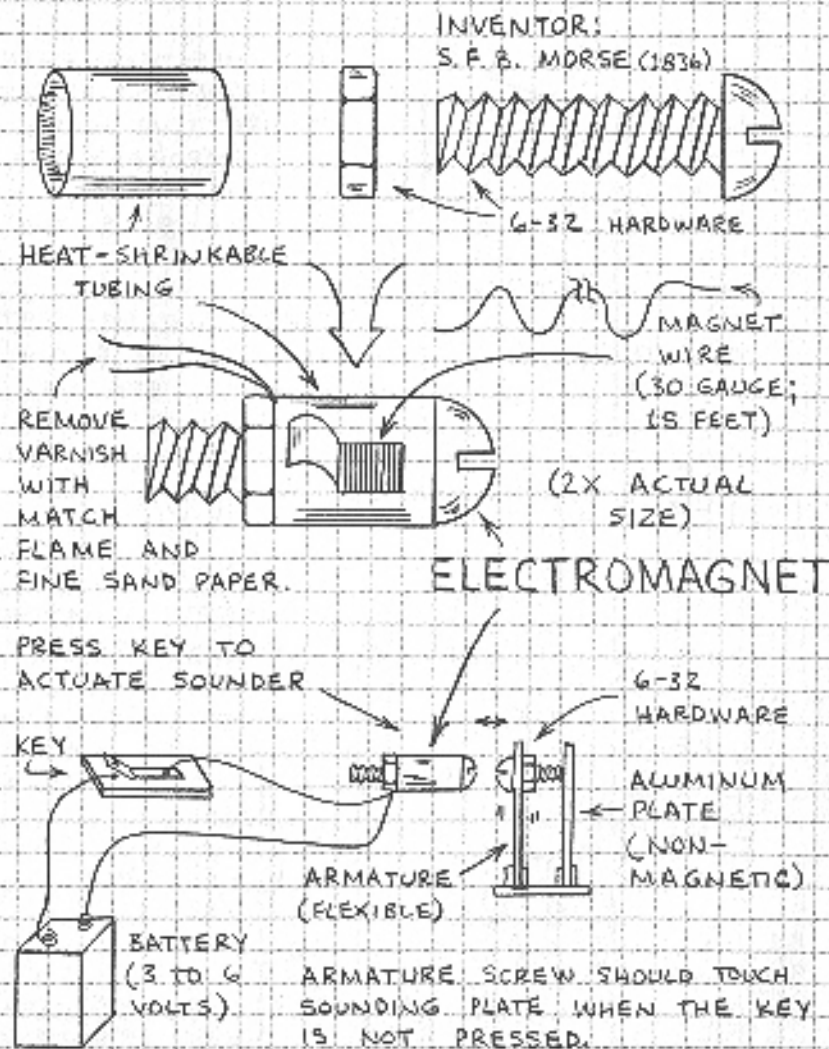 INVENTOR:
S. F. B. MORSE (1836)
6-32 HARDWARE
HEAT-SHRINKABLE
TUBING
MAGNET
WIRE
(30 GAUGE;
15 FEET)
REMOVE
VARNISH
WITH
MATCH
FLAME AND
FINE SAND PAPER.
(2X ACTUAL
SIZE)
ELECTROMAGNET
PRESS KEY TO
ACTUATE SOUNDER
6-32
HARDWARE
KEY
ALUMINUM
PLATE
(NON-
MAGNETIC)
ARMATURE
(FLEXIBLE)
BATTERY
(3 TO 6
VOLTS)
ARMATURE SCREW SHOULD TOUCH
SOUNDING PLATE WHEN THE KEY
IS NOT PRESSED.